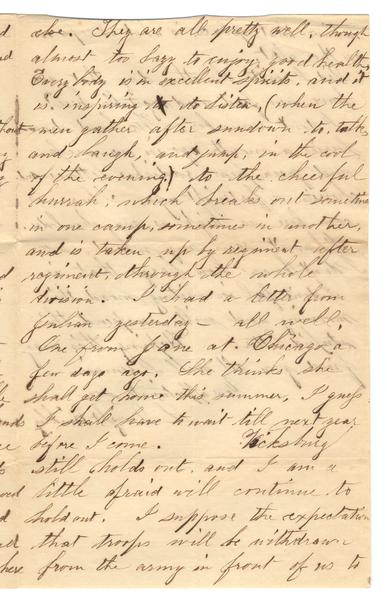 else. They are all pretty well, though
almost too lazy to enjoy good health
Everybody is in excellent spirits, and it
is inspiring to listen, (when the
men gather after sundown to talk
and laugh, and jump, in the cool
of the evening) to the cheerful
hurrah, which break out sometimes
in one camp, sometimes in another,
and is taken up by regiment after
regiment, through the whole
division. I had a letter from
Julian yesterday – all well.
One from Jane at Chicago, a
few days ago. She thinks she
shall get home this summer, I guess
I shall have to wait till next year
before I come. Vicksburg
still holds out, and I am a
little afraid will continue to
hold out. I suppose the expectation
that troops will be withdrawn
from the army in front of us to